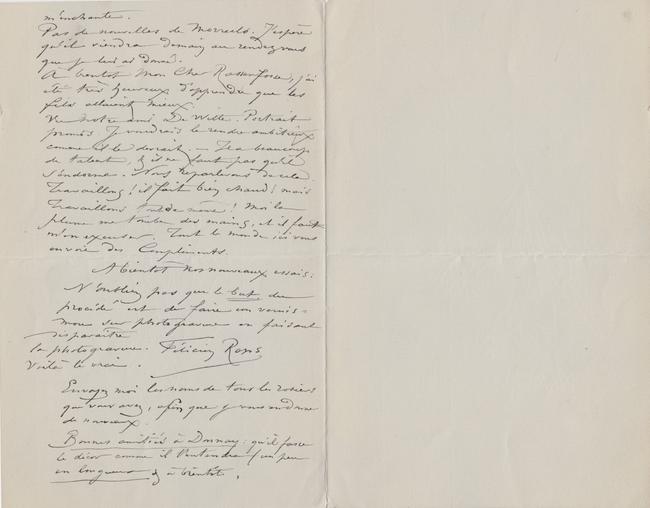 m'enchante.
Pas de nouvelles de J'espère
qu'il viendra demain au rendez vous
que je lui ai donné.
A bientôt Mon Cher Rassenfosse, j'ai
été très heureux d'apprendre que les
allaient mieux.
Vu notre ami De Witte. Portrait
promis Je voudrais le rendre ambitieux
comme il le devrait. — Il a beaucoup
de talent, & il ne faut pas qu'il
s'endorme. Nous reparlerons de cela.
Travaillons! il fait bien chaud! mais
travaillons tout de même! Moi la
plume me tombe des mains, et il faut
m'en excuser. Tout le monde ici vous
envoie des Compliments.
A bientôt nos nouveaux essais:
N'oubliez pas que le but du
procédé est de faire un vernis-
mou sur photogravure en faisant
disparaître
la photogravure. Félicien Rops
Voilà le vrai.
Envoyez moi les noms de tous les rosiers
que vous avez, afin que j vous en donne
de nouveaux.
Bonnes amitiés à Donnay: qu'il fasse
le décor comme il l'entendra (un peu
en longueur & à bientôt.